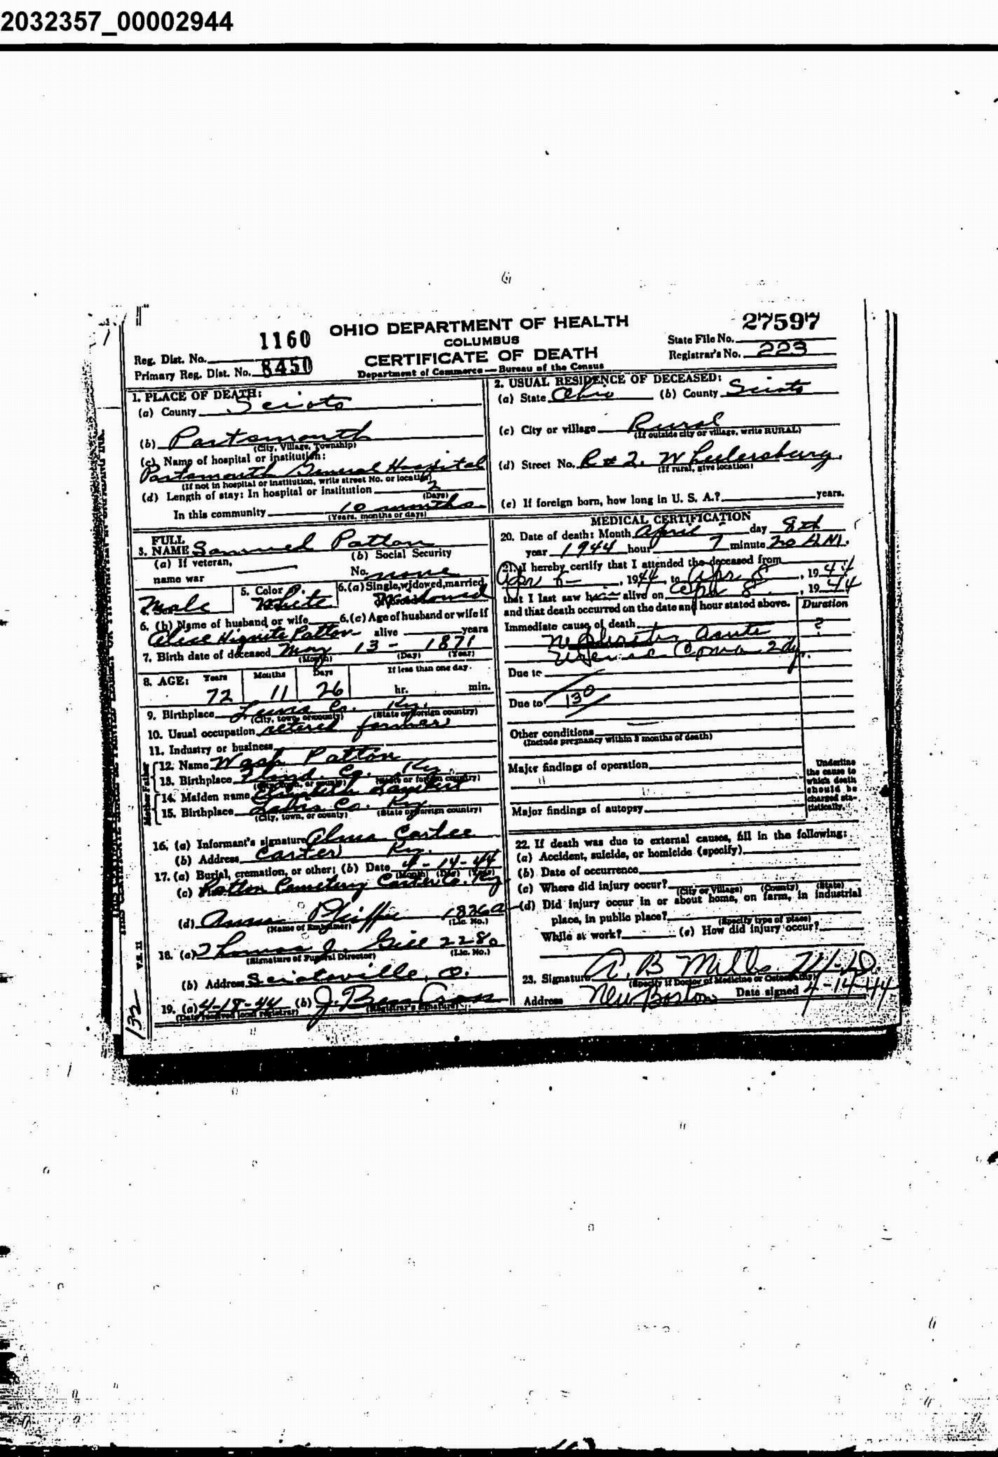 2032357_00002944
1160 OHIO DEPARTMENT OF HEALTH 27597
COLUMBUS State File No.
Reg. Dist. No. CERTIFICATE OF DEATH Registrar's No. 223
Primary Reg. Dist. No. 8450 Department of Commerce — Bureau of the Census
1. PLACE OF DEATH:
(a) County Scioto
(b) Portsmouth
(City, Village, Township)
(c) Name of hospital or institution:
Portsmouth General Hospital
(If not in hospital or institution, write street No. or location)
(d) Length of stay: In hospital or institution 2
(Days)
In this community 10 months
(Years, months or days)
2. USUAL RESIDENCE OF DECEASED:
(a) State Ohio (b) County Scioto
(c) City or village Rural
(If outside city or village, write RURAL)
(d) Street No. R#2. Wheelersburg.
(If rural, give location)
(e) If foreign born, how long in U. S. A.? years.
FULL
3. NAME Samuel Patton
(a) If veteran, (b) Social Security
name war No. none
4. Male 5. Color White 6. (a) Single, widowed, married,
6. (b) Name of husband or wife 6. (c) Age of husband or wife if
Alice Hignite Patton alive years
7. Birth date of deceased May 13 - 1871
(Month) (Day) (Year)
8. AGE: Years Months Days If less than one day
72 11 26 hr. min.
9. Birthplace Lewis Co. Ky.
(City, town, or county) (State or foreign country)
10. Usual occupation retired farmer
11. Industry or business
12. Name Wash Patton
13. Birthplace Floyd Co. Ky.
14. Maiden name
15. Birthplace Co. Ky
(City, town, or county) (State or foreign country)
16. (a) Informant's signature Carter
(b) Address Carter Ky.
17. (a) Burial, cremation, or other; (b) Date 4-14-44
(Month) (Day) (Year)
(c) Cemetery Carter Co. Ky
(d) Anna Pfeiffer 1826a
(Name of Embalmer) (Lic. No.)
18. (a) Thomas J. Gill 2280
(Signature of Funeral Director) (Lic. No.)
(b) Address Sciotoville, O.
19. (a) 4-18-44 (b) J.
(Date received local registrar) (Registrar's signature)
MEDICAL CERTIFICATION
20. Date of death: Month April day 8th
year 1944 hour 7 minute 20 A.M.
21. I hereby certify that I attended the deceased from
Apr 6 , 1944 to Apr 8 , 1944
that I last saw him alive on Apr 8 , 1944
and that death occurred on the date and hour stated above. Duration
Immediate cause of death ?
Nephritis, acute
Uremic Coma 2 dy.
Due to
Due to 130
Other conditions
(Include pregnancy within 3 months of death)
Major findings of operation
Major findings of autopsy
Underline
the cause to
which death
should be
charged sta-
tistically.
22. If death was due to external causes, fill in the following:
(a) Accident, suicide, or homicide (specify)
(b) Date of occurrence
(c) Where did injury occur?
(City or Village) (County) (State)
(d) Did injury occur in or about home, on farm, in industrial
place, in public place?
(Specify type of place)
While at work? (e) How did injury occur?
23. Signature A. B. Mills M.D.
(Specify if Doctor of Medicine or Osteopathy)
Address New Boston Date signed 4-14-44
V.S. 11
132